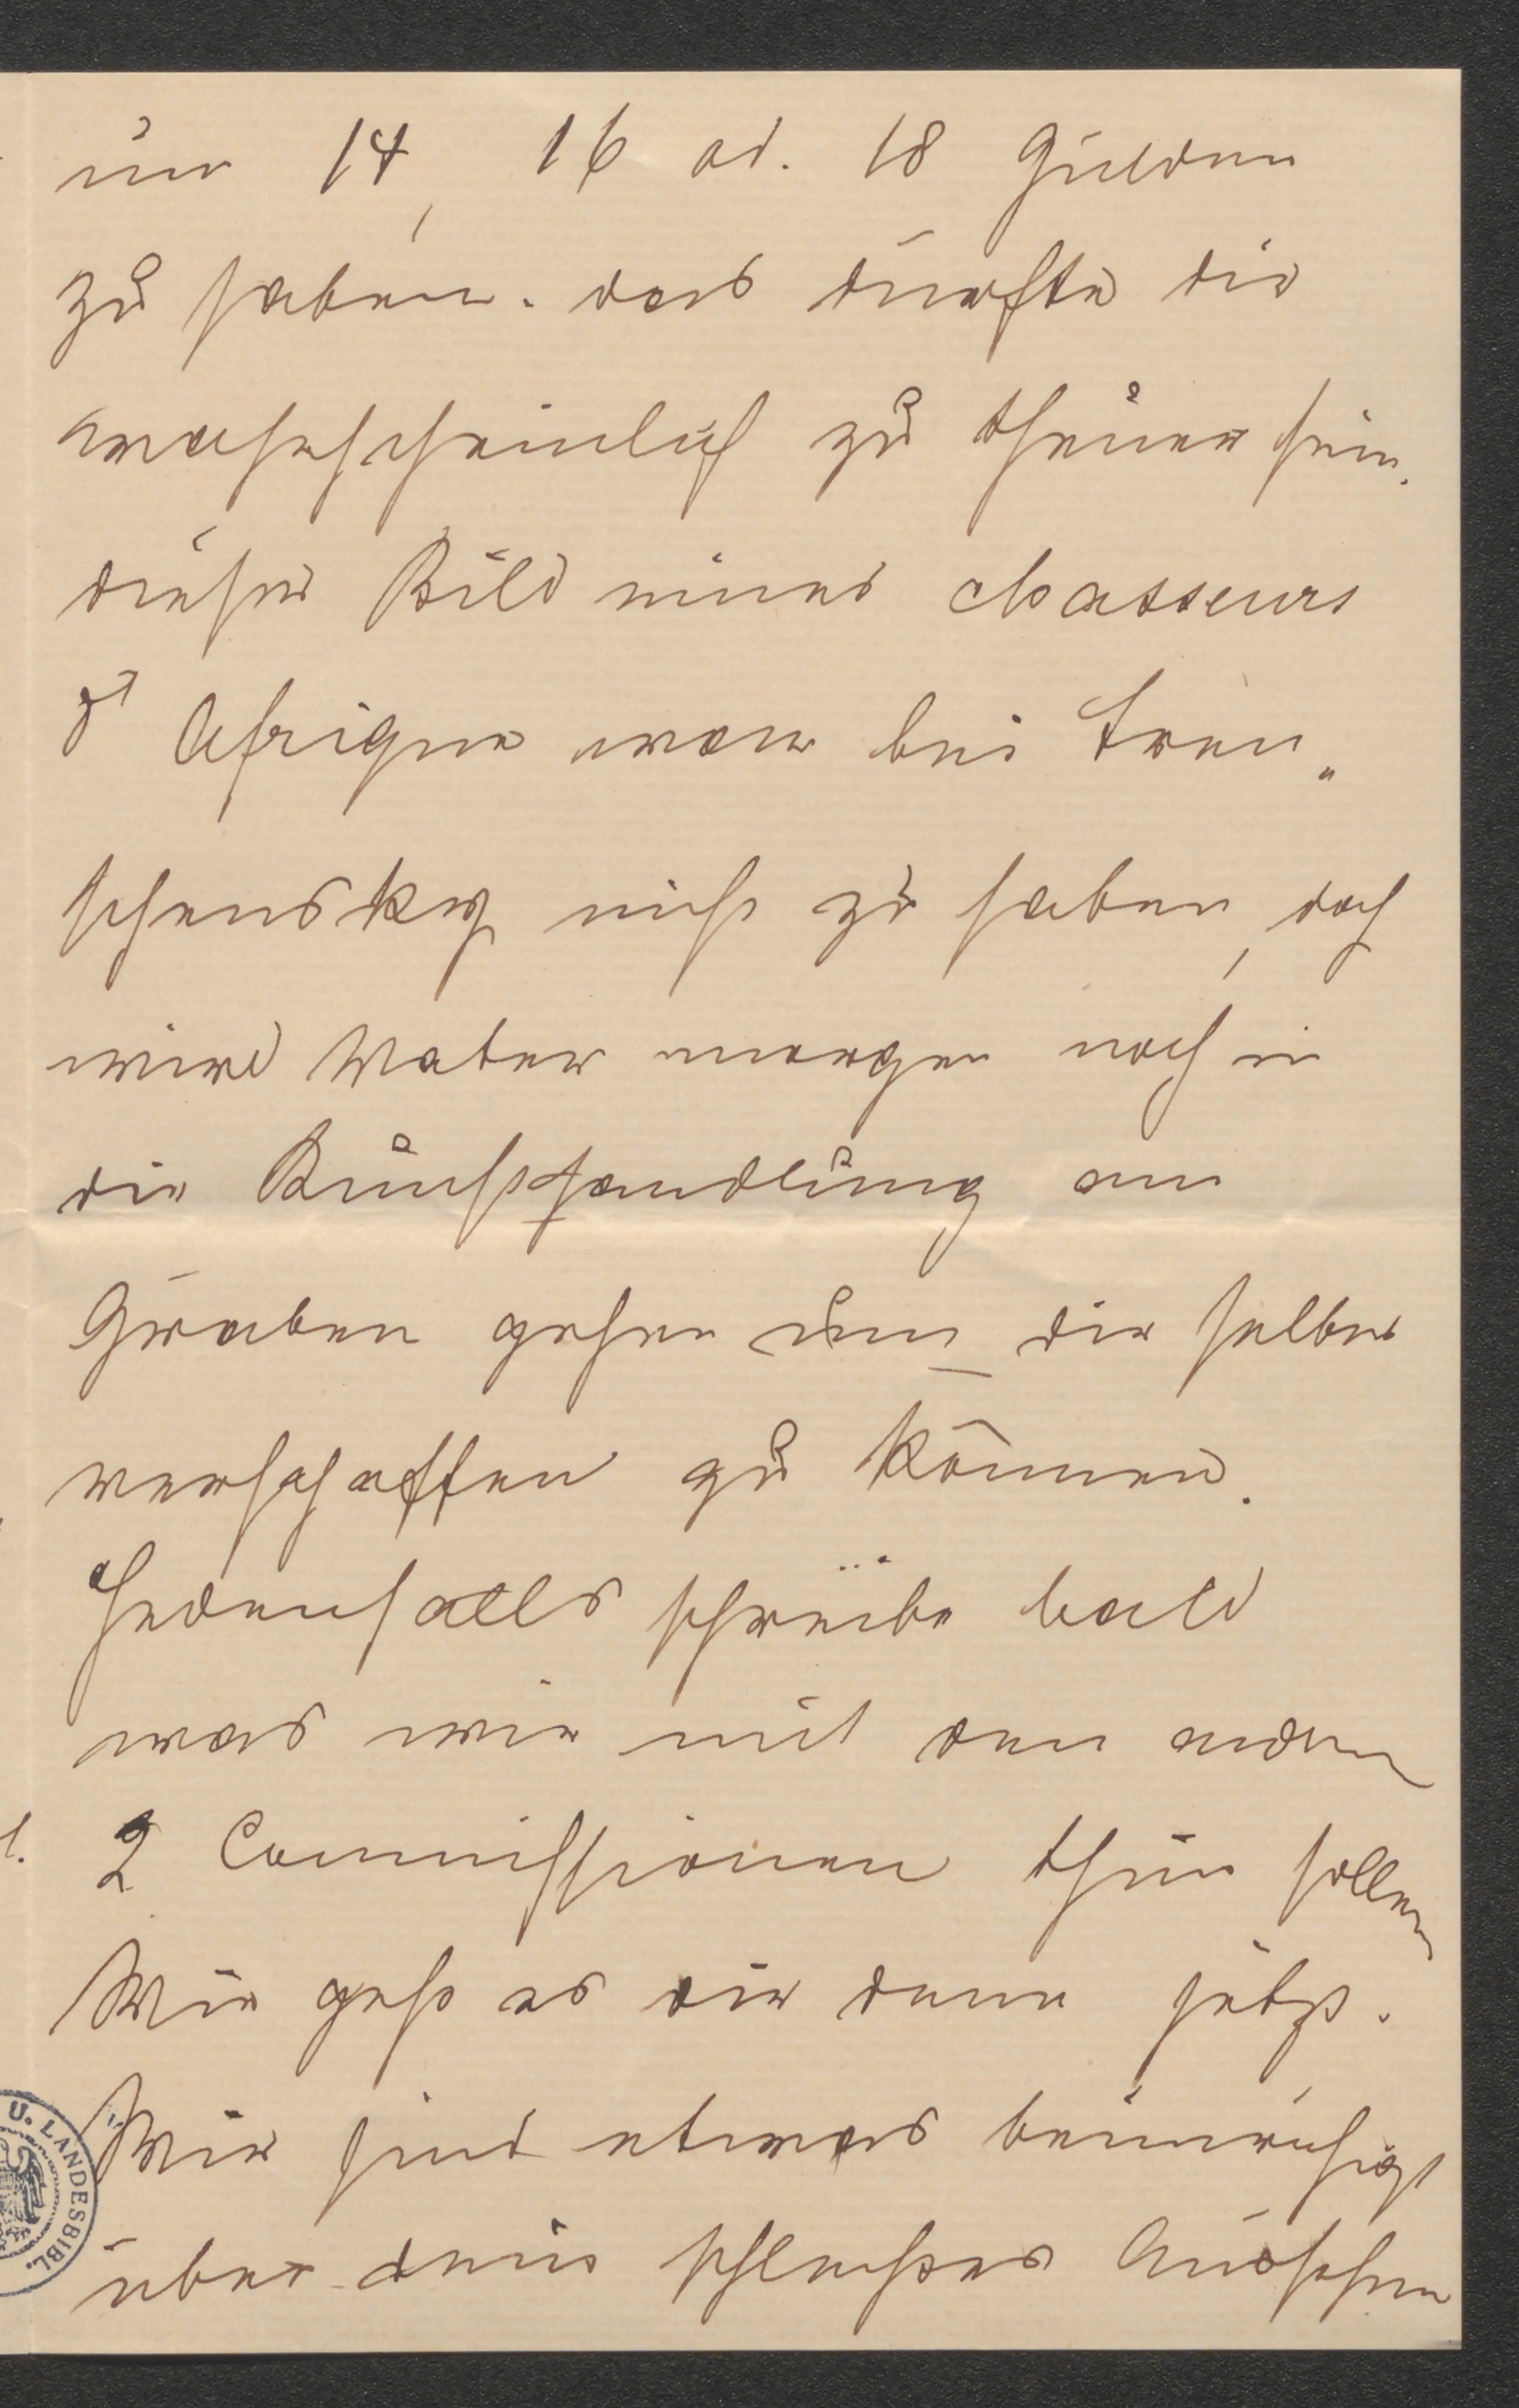 nur 14, 16 od. 18 Gulden
zu haben. das dürfte dir
wahrscheinlich zu theuer sein.
dieses Bild eines chasseurs
d' Afrique war bei Tren„
schensky nicht zu haben, doch
wird Vater morgen noch in
die Kunsthandlung am
Graben gehen um dir selbes
verschaffen zu können.
Jedenfalls schreibe bald
was wir mit den andern
2 Commissionen thun sollen
Wie geht es dir denn jetzt.
Wir sind etwas beunruhigt
über dein schlechtes Aussehen
U. LANDESBIBL.